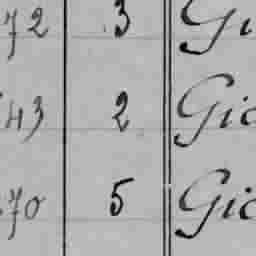 72 3 Gi
43 2 Gio
70 5 Gio